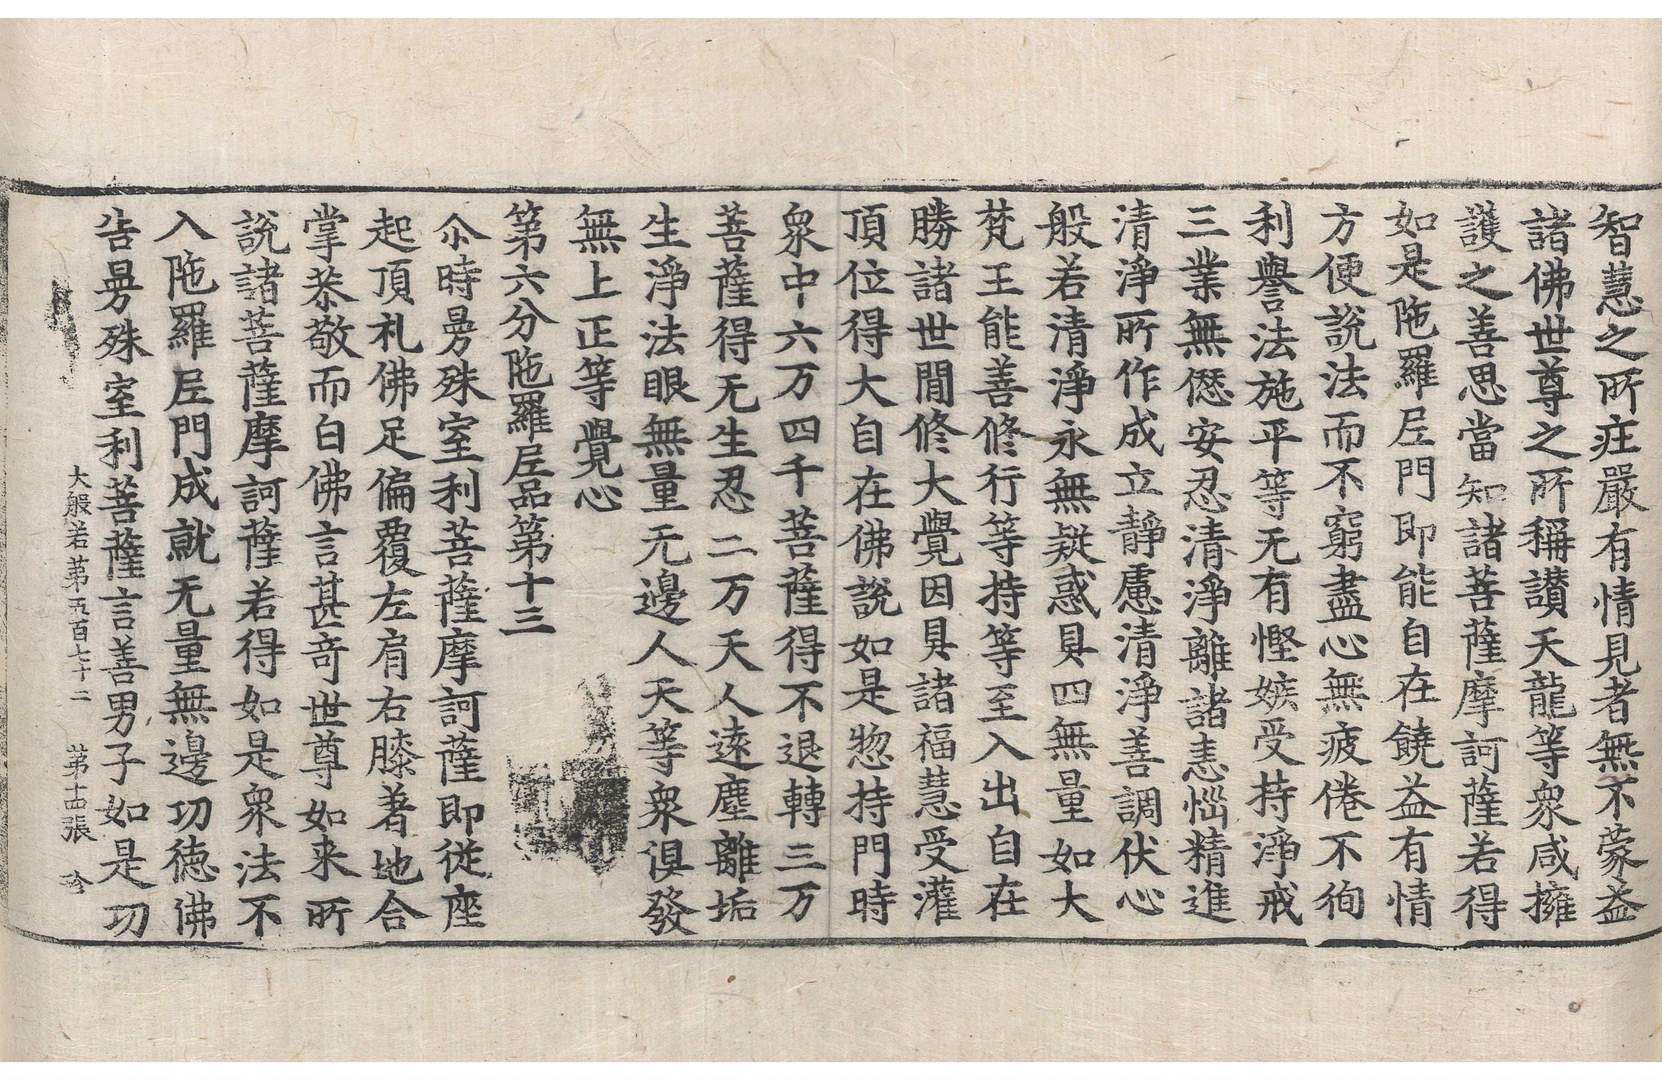 智慧之所莊嚴有情見者無不蒙益
諸佛世尊之所稱讃天龍等衆咸擁
護之善思當知諸菩薩摩訶薩若得
如是陁羅尼門即能自在饒益有情
方便說法而不窮盡心無疲倦不徇
利譽法施平等无有慳嫉受持淨戒
三業無㥶安忍清淨離諸恚惱精進
清淨所作成立靜慮清淨善調伏心
般若清淨永無疑惑具四無量如大
梵王能善修行等持等至入出自在
勝諸世閒修大覺因具諸福慧受灌
頂位得大自在佛說如是惣持門時
衆中六万四千菩薩得不退轉三万
菩薩得无生忍二万天人遠塵離垢
生淨法眼無量无邊人天等衆俱發
無上正等覺心
第六分陁羅尼品第十三
尒時曼殊室利菩薩摩訶薩即従座
起頂札佛足偏覆左肩右膝著地合
掌恭敬而白佛言甚奇世尊如来所
說諸菩薩摩訶薩若得如是衆法不
入陁羅尼門成就无量無邊功徳佛
告曼殊室利菩薩言善男子如是功
大般若第五百七十二 第十四張 珎